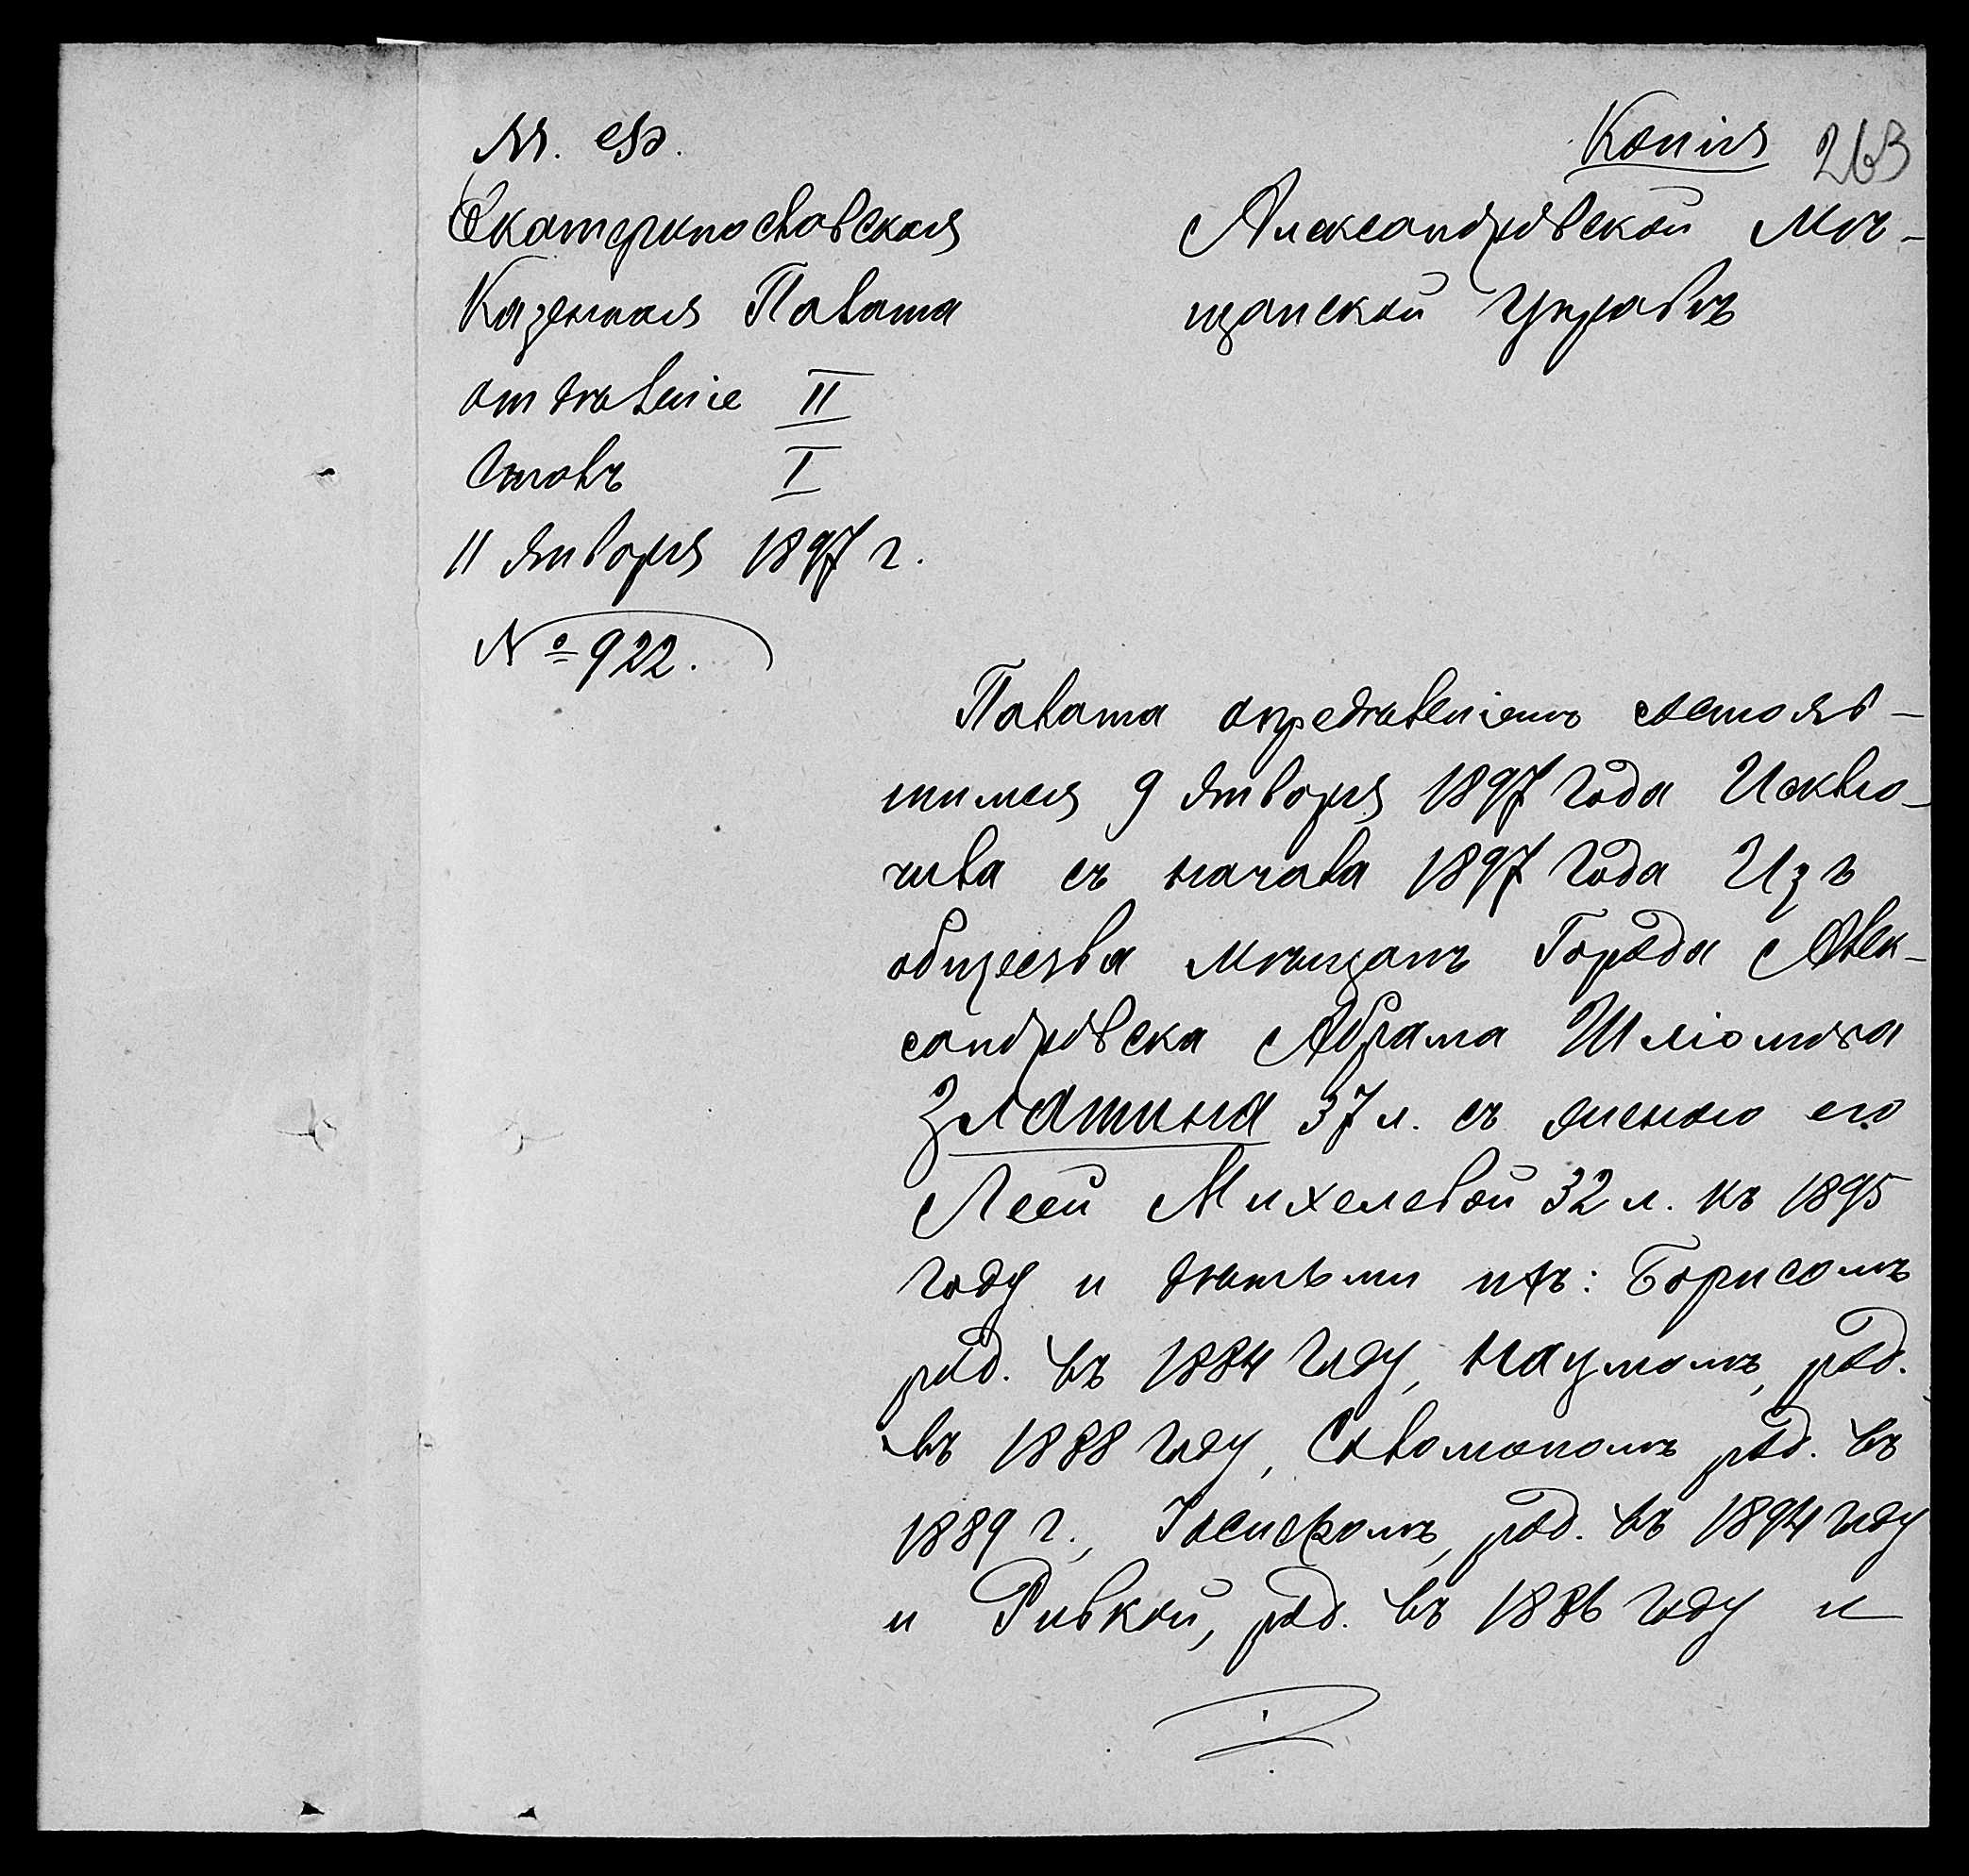 М. Ф.
Екатеринославская
Казенная Палата
отдѣленіе II
Столъ I
11 Января 1897 г.
№ 922.
Копія 263
Александровской Мѣ-
щанской Управѣ
Палата опредѣленіемъ состояв-
шимся 9 Января 1897 года Исклю-
чила съ начала 1897 года Изъ
общества мѣщанъ Города Алек-
сандровска Абрама Шліомова
Златина 37 л. съ женою его
Леей Михелевой 32 л. къ 1895
году и дѣтьми ихъ: Борисомъ
род. въ 1884 году, Наумомъ, род.
въ 1888 году, Соломономъ род. въ
1889 г., Іосифомъ, род. въ 1894 году
и Ривкой, род. въ 1886 году и